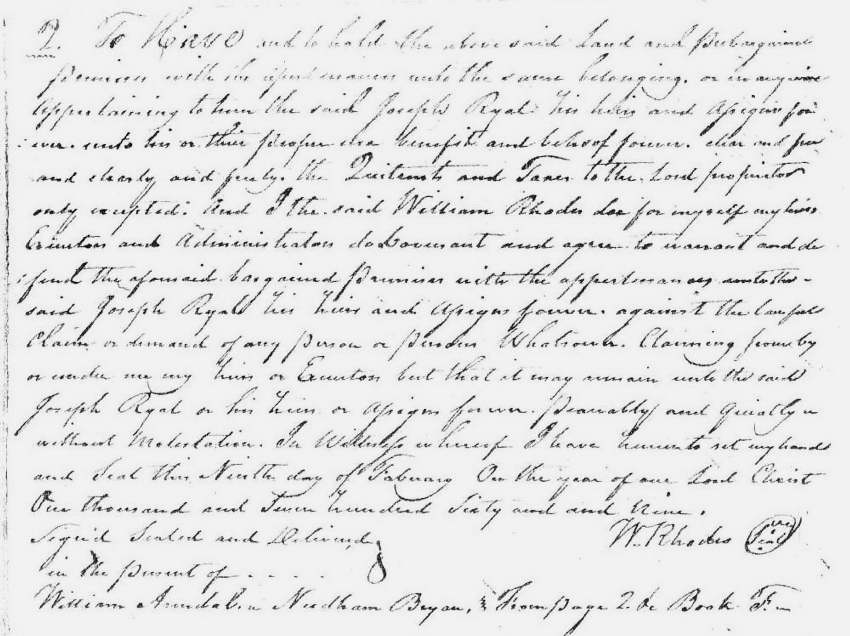 2. To Have and to hold the above said Land and Prebargained
Premises with the apurtenances unto the same belonging. or in anywise
Appertaining to him the said Joseph Ryal his heirs and Assigns for
ever. unto his or their proper use benefit and behoof forever. clear and free
and clearly and freely. the Quitrents and Taxes to the Lord proprietor
only excepted. And I the said William Rhodes do for myself my heirs
Executors and Administrators do Covenant and agree to warrant and de
fend the aforesaid bargained Premises with the appertenances unto the
said Joseph Ryal his heirs and Assigns forever. against the lawful
Claim or demand of any Person or Persons Whatsoever. Claiming from by
or under me my heirs or Executors but that it may remain unto the said
Joseph Ryal or his heirs or Assigns forever. Peaceably and Quietly
without Molestation. In Witness whereof I have hereunto set my hand
and Seal this Ninth day of Fabruary On the year of our Lord Christ
One thousand and Seven hundred Sixty and and Nine.
Signed Sealed and Delivered W. Rhodes Seal
in the Present of
William Needham Bryan, From page 2. Book F.